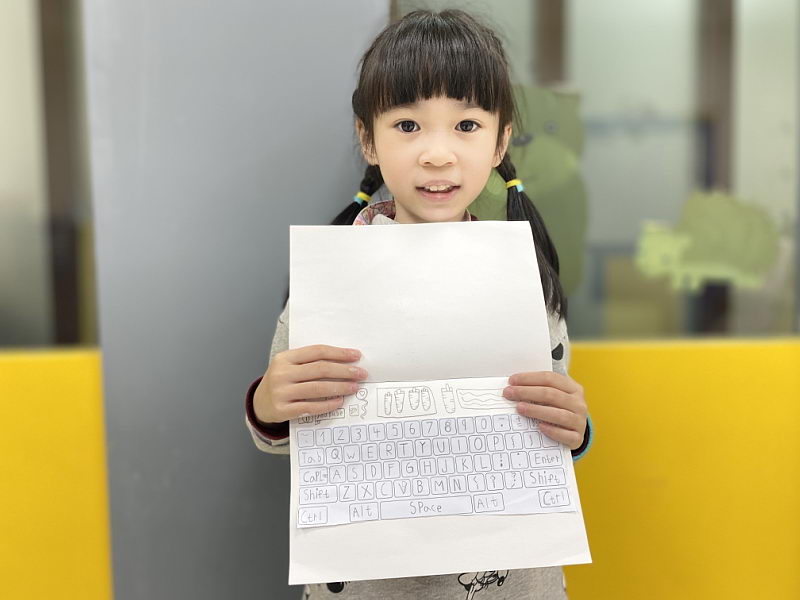 1 2 3 4 5 6 7 8 9 0
Tab Q W E R T Y U I O P
Caps A S D F G H J K L Enter
Shift Z X C V B M N Shift
Ctrl Alt Space Alt Ctrl